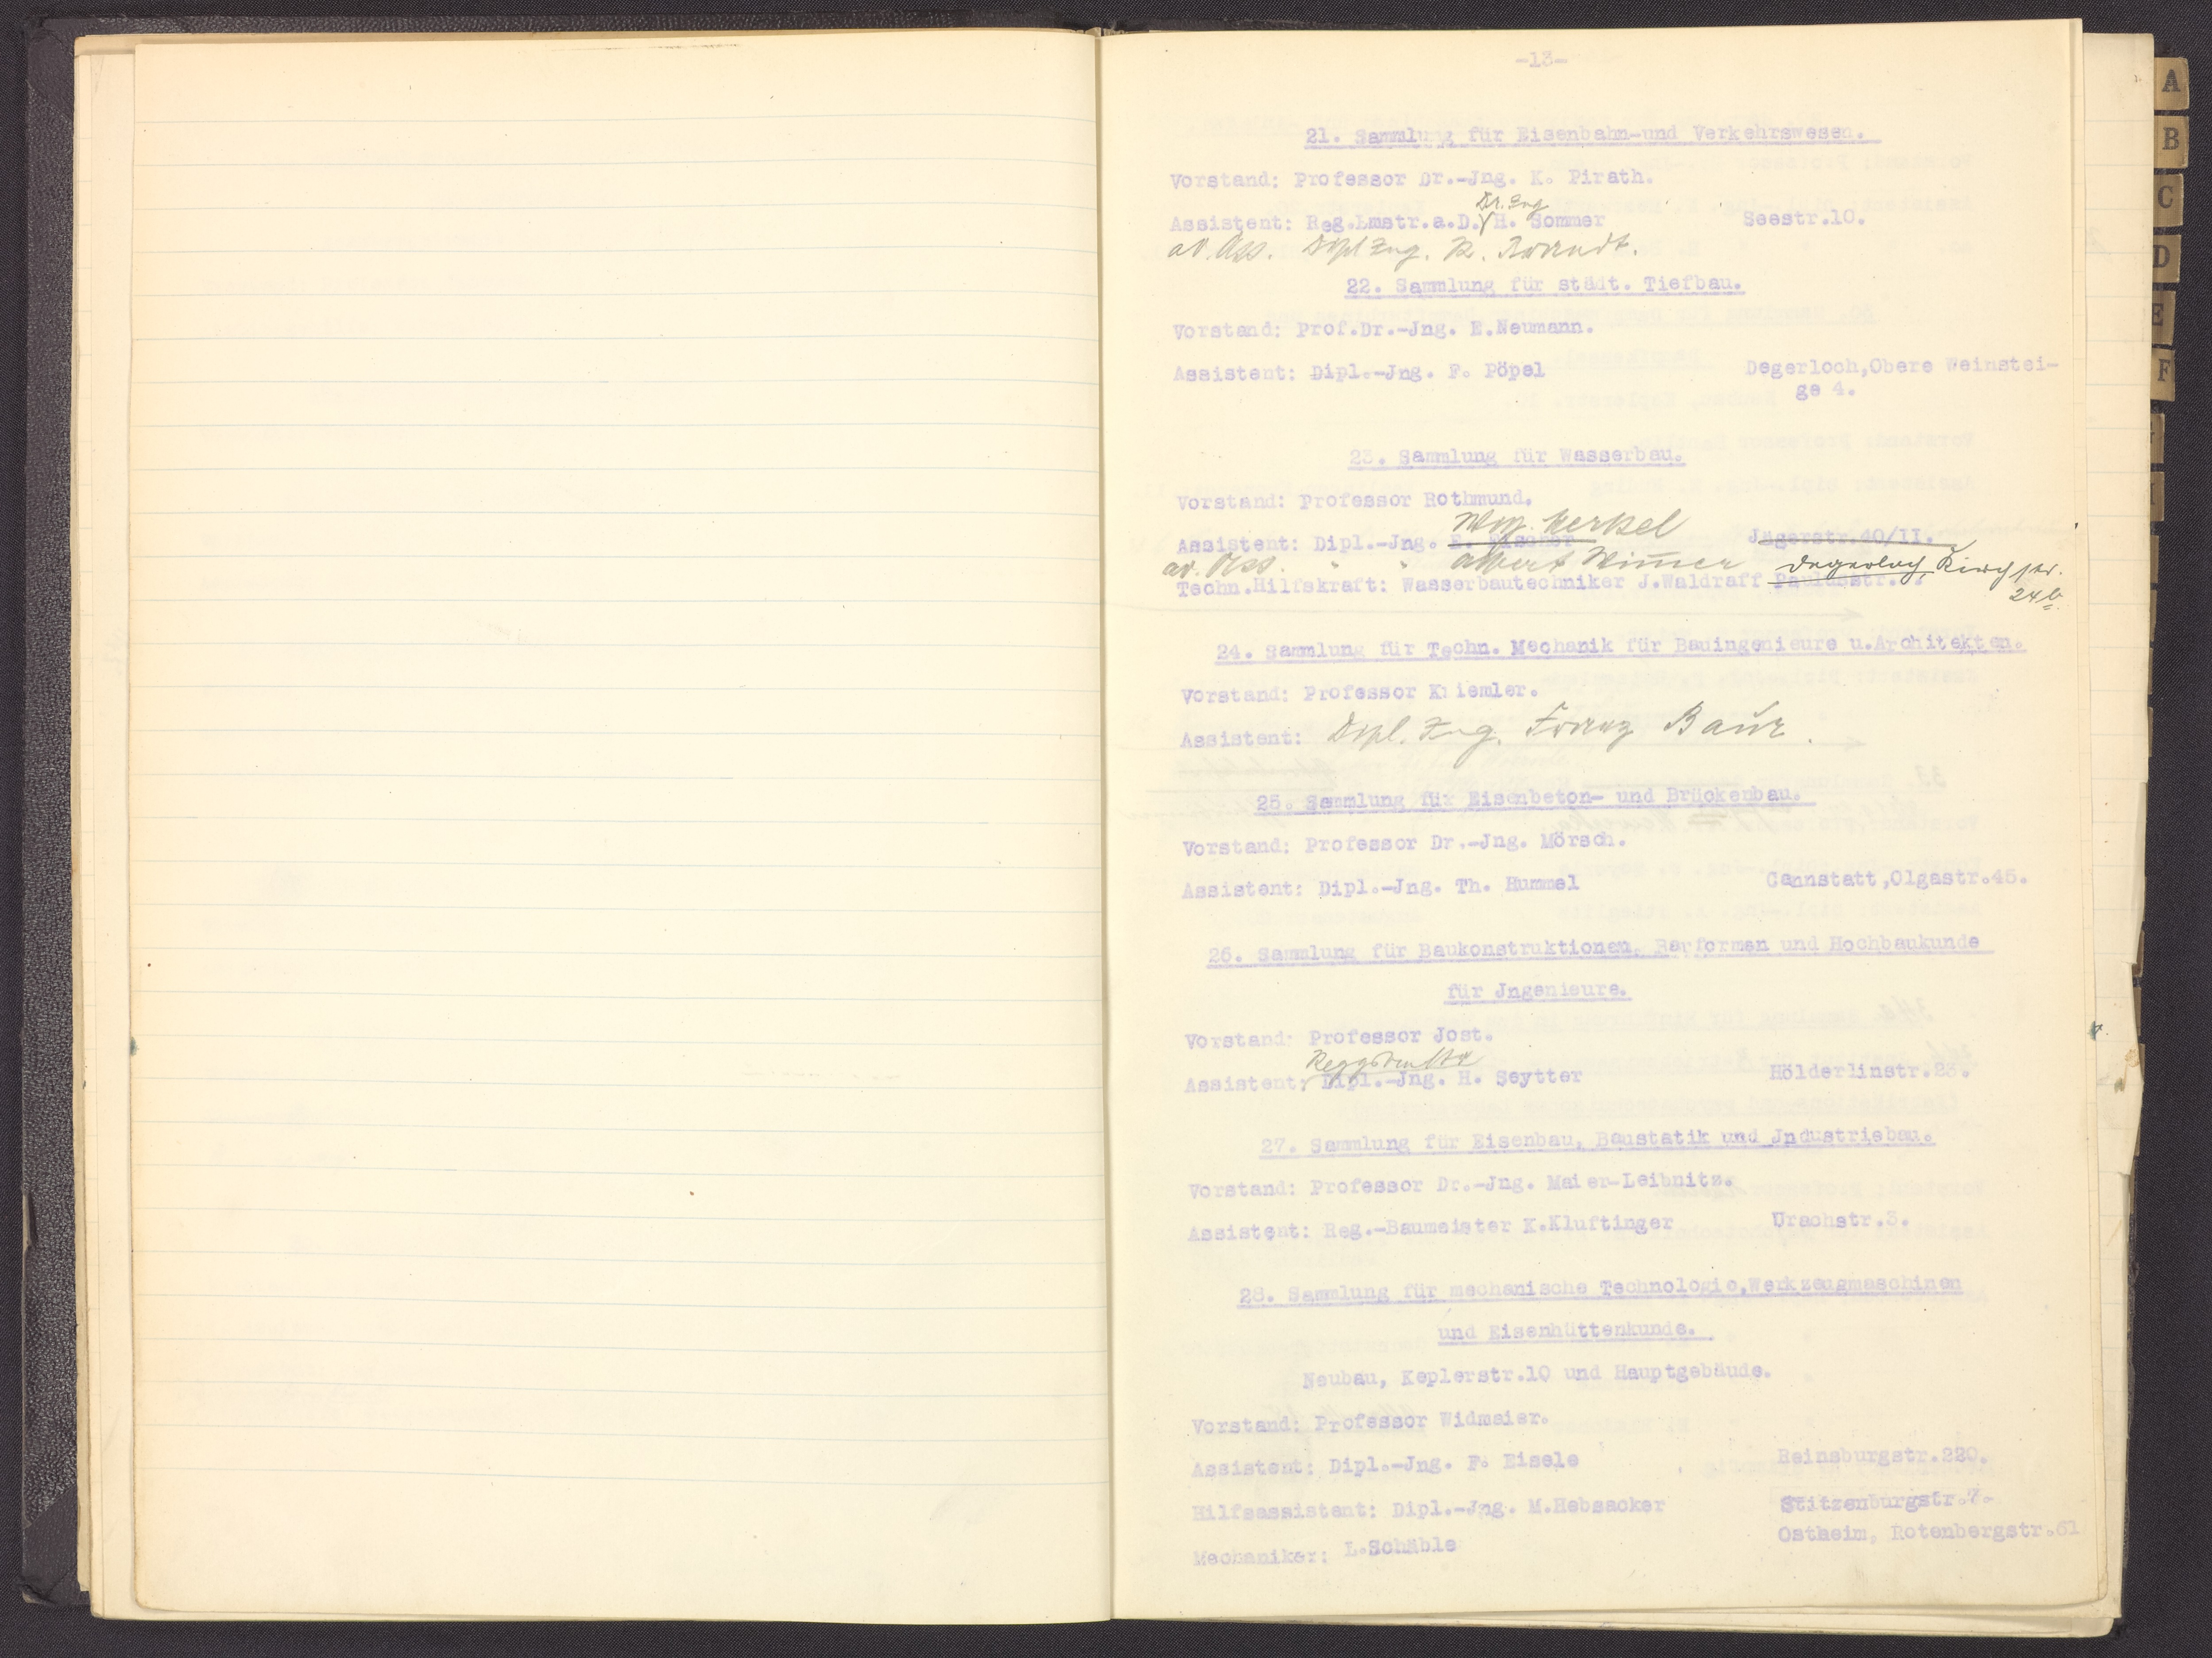 -13-
21. Sammlung für Eisenbahn-und Verkehrswesen.
Vorstand: Professor Dr.-Jng. K. Pirath.
Dr. Ing
Assistent: Reg.Bmstr.a.D. H. Sommer Seestr.10.
Ass. Dipl Ing. R.
22. Sammlung für städt. Tiefbau.
Vorstand: Prof.Dr.-Jng. E.Neumann.
Assistent: Dipl.-Jng. F. Pöpel Degerloch,Obere Weinstei-
ge 4.
23. Sammlung für Wasserbau.
Vorstand: Professor Rothmund.
Merkel
Assistent: Dipl.-Jng. E. Fischer Jägerstr.40/II.
Ass. " " Albert Wimmer Degerloch Kirchstr.
Techn.Hilfskraft: Wasserbautechniker J.Waldraff
24
24. Sammlung für Techn. Mechanik für Bauingenieure u.Architekten.
Vorstand: Professor Kriemler.
Assistent: Dipl. Ing. Franz Baur.
25. Sammlung für Eisenbeton- und Brückenbau.
Vorstand: Professor Dr.-Jng. Mörsch.
Assistent: Dipl.-Jng. Th. Hummel Cannstatt,Olgastr.45.
26. Sammlung für Baukonstruktionen, Bauformen und Hochbaukunde
für Jngenieure.
Vorstand: Professor Jost.
Assistent: Dipl.-Jng. H. Seytter Hölderlinstr.23.
27. Sammlung für Eisenbau, Baustatik und Jndustriebau.
Vorstand: Professor Dr.-Jng. Maier-Leibnitz.
Assistent: Reg.-Baumeister K.Kluftinger Urachstr.3.
28. Sammlung für mechanische Technologie,Werkzeugmaschinen
und Eisenhüttenkunde.
Neubau, Keplerstr.10 und Hauptgebäude.
Vorstand: Professor Widmaier.
Assistent: Dipl.-Jng. F. Eisele Reinsburgstr.220.
Hilfsassistent: Dipl.-Jng. M.Hebsacker Stitzenburgstr.7.
Mechaniker: L.Schäble Ostheim, Rotenbergstr.61
A
B
C
D
E
F